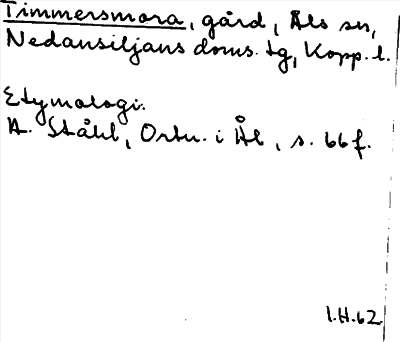 Timmersmora, gård, Åls sn,
Nedansiljans doms. tg, Kopp. l.
Etymologi.
H. Ståhl, Ortn. i Ål, s. 66 f.
1.H.62